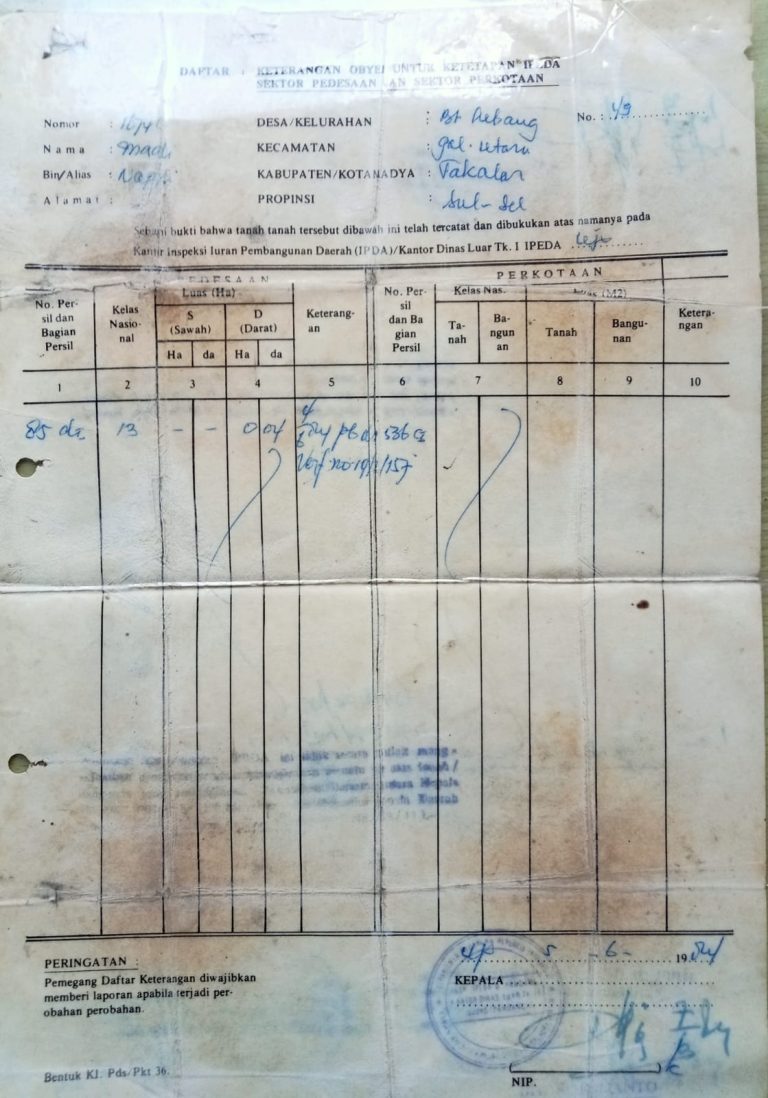 DAFTAR : KETERANGAN OBYEK UNTUK KETETAPAN IPEDA
SEKTOR PEDESAAN DAN SEKTOR PERKOTAAN
Nomor :
DESA/KELURAHAN : Bt Lebang
No. : 49
Nama :
KECAMATAN : Gal. Utara
Bin/Alias :
KABUPATEN/KOTAMADYA : Takalar
Alamat :
PROPINSI : Sul-Sel
Sebagai bukti bahwa tanah tanah tersebut dibawah ini telah tercatat dan dibukukan atas namanya pada
Kantor Inspeksi Iuran Pembangunan Daerah (IPDA)/Kantor Dinas Luar Tk. I IPEDA
PEDESAAN
PERKOTAAN
No. Per-
sil dan
Bagian
Persil
Kelas
Nasio-
nal
Luas (Ha)
S
(Sawah)
D
(Darat)
Ha
da
Ha
da
Keterang-
an
No. Per-
sil
dan Ba
gian
Persil
Kelas Nas.
Ta-
nah
Ba-
ngun
an
Luas (M2)
Tanah
Bangu-
nan
Ketera-
ngan
1 2 3 4 5 6 7 8 9 10
13 - - 0 04
PERINGATAN :
Pemegang Daftar Keterangan diwajibkan
memberi laporan apabila terjadi per-
obahan perobahan.
5 - 6 - 1984
KEPALA
NIP.
Bentuk KI. Pds/Pkt 36.